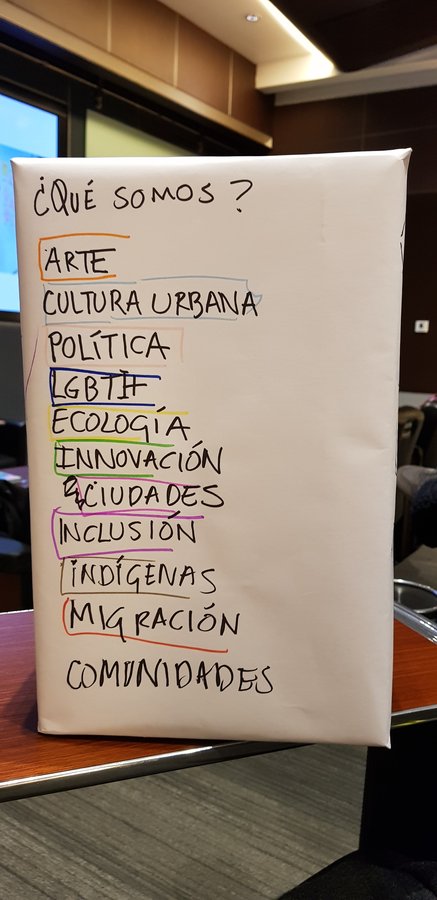 ¿QUÉ SOMOS?
ARTE
CULTURA URBANA
POLÍTICA
LGBTI+
ECOLOGÍA
INNOVACIÓN
CIUDADES
INCLUSIÓN
INDÍGENAS
MIGRACIÓN
COMUNIDADES